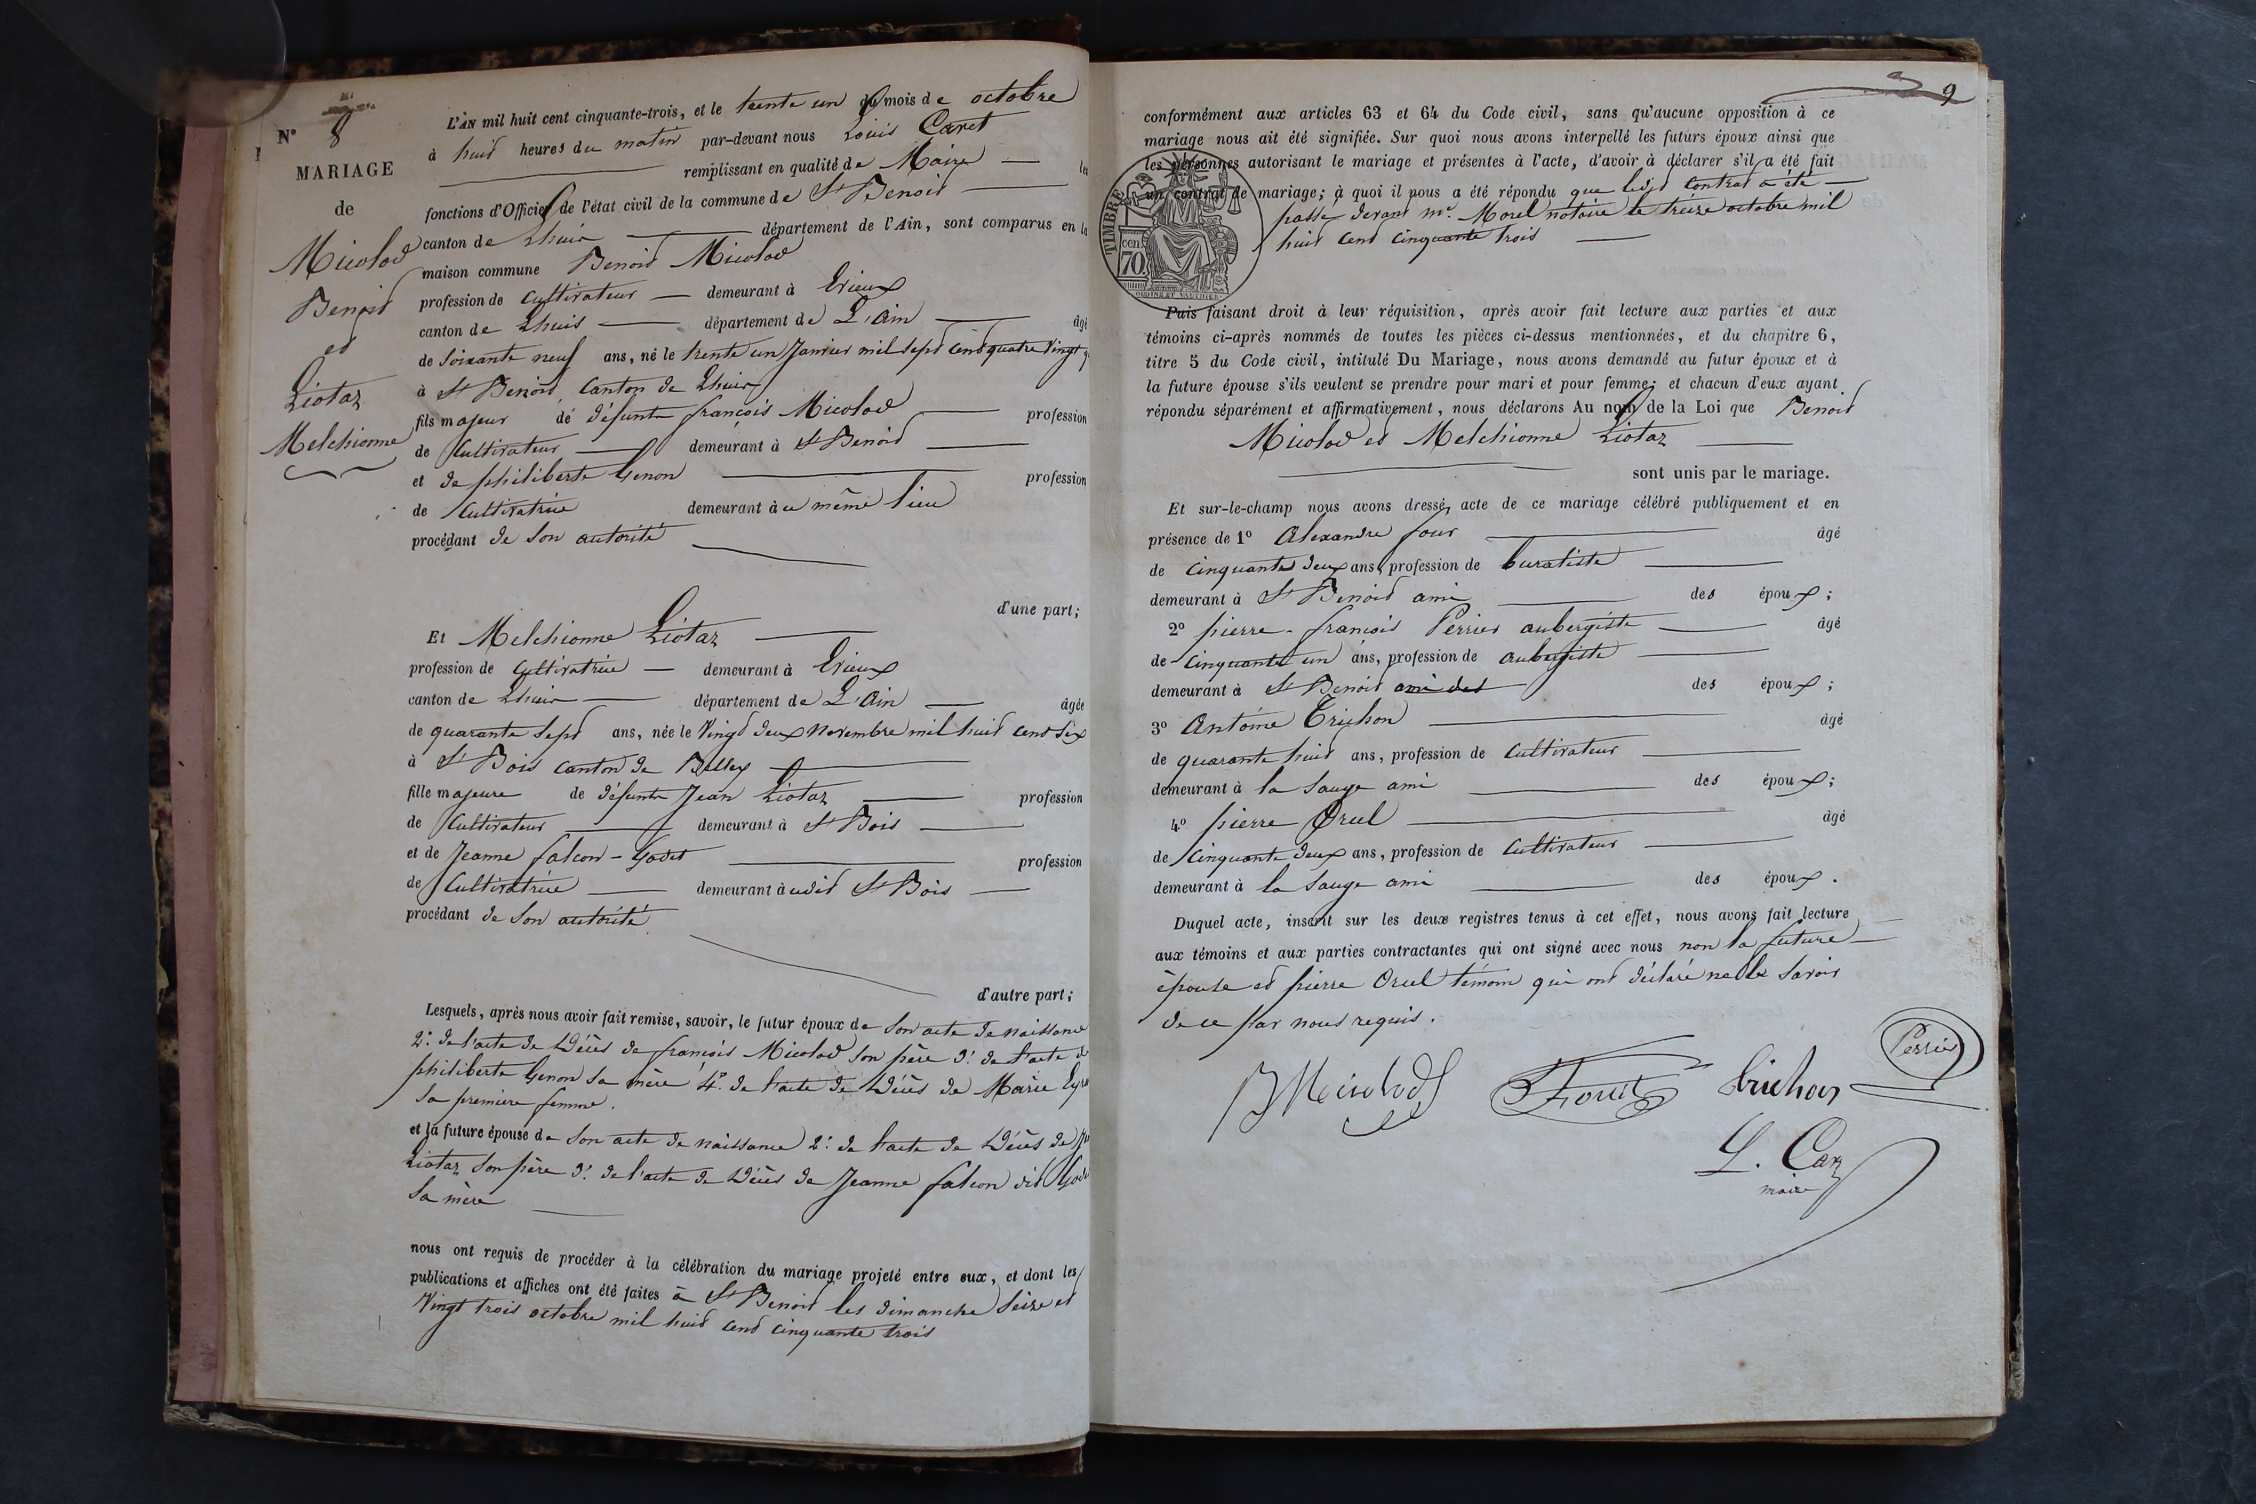 N° 8
MARIAGE
de
Micolod
Benoid
ed
Liotaz
Melchionne
L'AN mil huit cent cinquante-trois, et le trente un du mois de octobre
à huid heures du matin par-devant nous Louis Caret
remplissant en qualité de Maire les
fonctions d'Officier de l'état civil de la commune de St Benoid
canton de Lhuis département de l'Ain, sont comparus en la
maison commune Benoid Micolod
profession de Cultivateur demeurant à Evieux
canton de Lhuis département de L'Ain âgé
de soixante neuf ans, né le trente un Janvier mil sept cend quatre Vingt
à St Benoid Canton de Lhuis
fils majeur de défunts françois Micolod profession
de Cultivateur demeurant à St Benoid
et de philiberte Genon profession
de Cultivatrice demeurant à ce même lieu
procédant de son autorité
d'une part;
Et Melchionne Liotaz
profession de Cultivatrice demeurant à Evieux
canton de Lhuis département de L'Ain âgée
de quarante sepd ans, née le Vingd deux Novembre mil huid cend six
à St Bois canton de Belley
fille majeure de défunts Jean Liotaz profession
de Cultivateur demeurant à St Bois
et de Jeanne falcon-Godet profession
de Cultivatrice demeurant à udid St Bois
procédant de son autorité
d'autre part;
Lesquels, après nous avoir fait remise, savoir, le futur époux de son acte de naissance
2° de l'acte de Décès de françois Micolod son père 3° de l'acte de
philiberte Genon sa mère 4° de l'acte de Décès de Marie
sa première femme.
et la future épouse de son acte de naissance 2° de l'acte de Décès de
Liotaz son père 3° de l'acte de Décès de Jeanne falcon did
sa mère
nous ont requis de procéder à la célébration du mariage projeté entre eux, et dont les
publications et affiches ont été faites à St Benoid les dimanche seize et
Vingt trois octobre mil huid cend cinquante trois
9
conformément aux articles 63 et 64 du Code civil, sans qu'aucune opposition à ce
mariage nous ait été signifiée. Sur quoi nous avons interpellé les futurs époux ainsi que
les personnes autorisant le mariage et présentes à l'acte, d'avoir à déclarer s'il a été fait
un contrat de mariage; à quoi il nous a été répondu que ledid contrat a été
passé devant me. Morel notaire le treize octobre mil
huid cend cinquante trois
TIMBRE
cen.
70.
Puis faisant droit à leur réquisition, après avoir fait lecture aux parties et aux
témoins ci-après nommés de toutes les pièces ci-dessus mentionnées, et du chapitre 6,
titre 5 du Code civil, intitulé Du Mariage, nous avons demandé au futur époux et à
la future épouse s'ils veulent se prendre pour mari et pour femme; et chacun d'eux ayant
répondu séparément et affirmativement, nous déclarons Au nom de la Loi que Benoid
Micolod ed Melchionne Liotaz
sont unis par le mariage.
Et sur-le-champ nous avons dressé acte de ce mariage célébré publiquement et en
présence de 1° Alexandre four âgé
de cinquante deux ans, profession de buraliste
demeurant à St Benoid ami des époux;
2° pierre-françois Perrier aubergiste âgé
de cinquante un ans, profession de aubergiste
demeurant à St Benoid ami des des époux;
3° Antoine Trichon âgé
de quarante huid ans, profession de Cultivateur
demeurant à la sauge ami des époux;
4° pierre Orcel âgé
de Cinquante deux ans, profession de Cultivateur
demeurant à la sauge ami des époux.
Duquel acte, inscrit sur les deux registres tenus à cet effet, nous avons fait lecture
aux témoins et aux parties contractantes qui ont signé avec nous non la future
épouse ed pierre Orcel témoin qui ond déclaré ne le savoir
de ce par nous requis.
Perrier
B Micolod Trichon
L. Car
maire